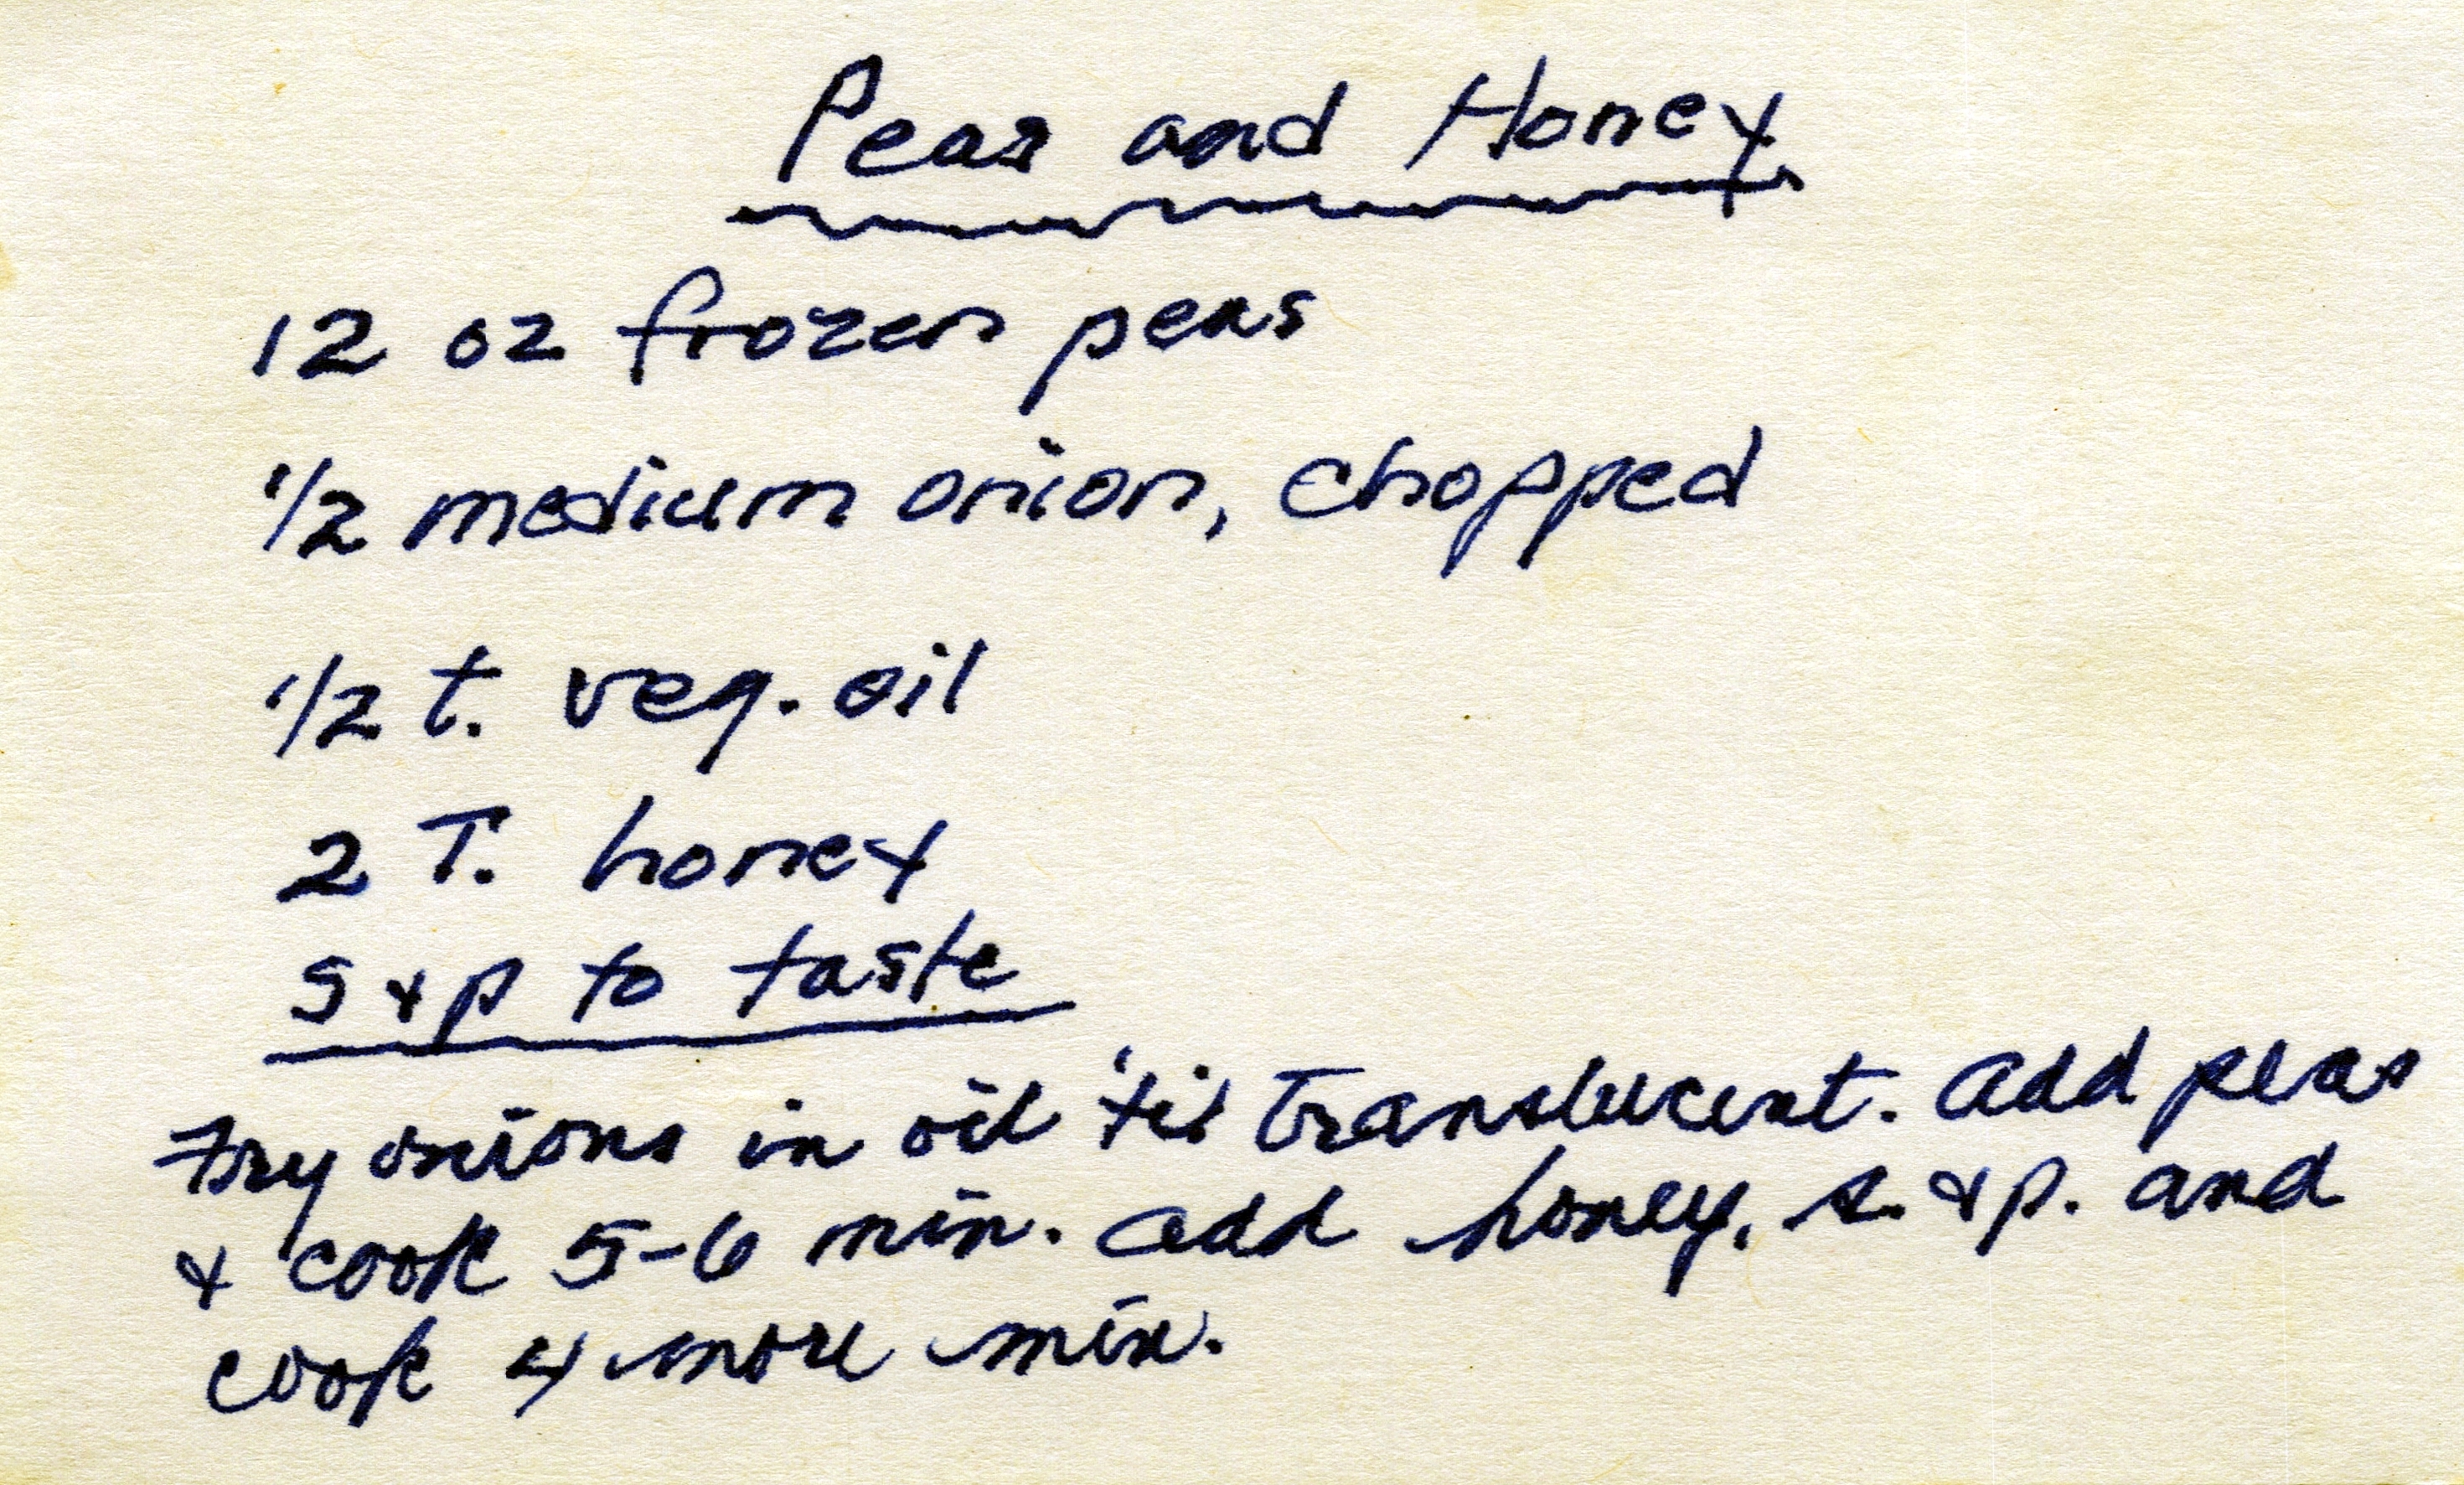 Peas and Honey
12 oz frozen peas
1/2 medium onion, chopped
1/2 t. veg. oil
2 T. honey
S & p to taste
Fry onions in oil 'til translucent. Add peas
& cook 5-6 min. Add honey, s. & p. and
cook 4 more min.